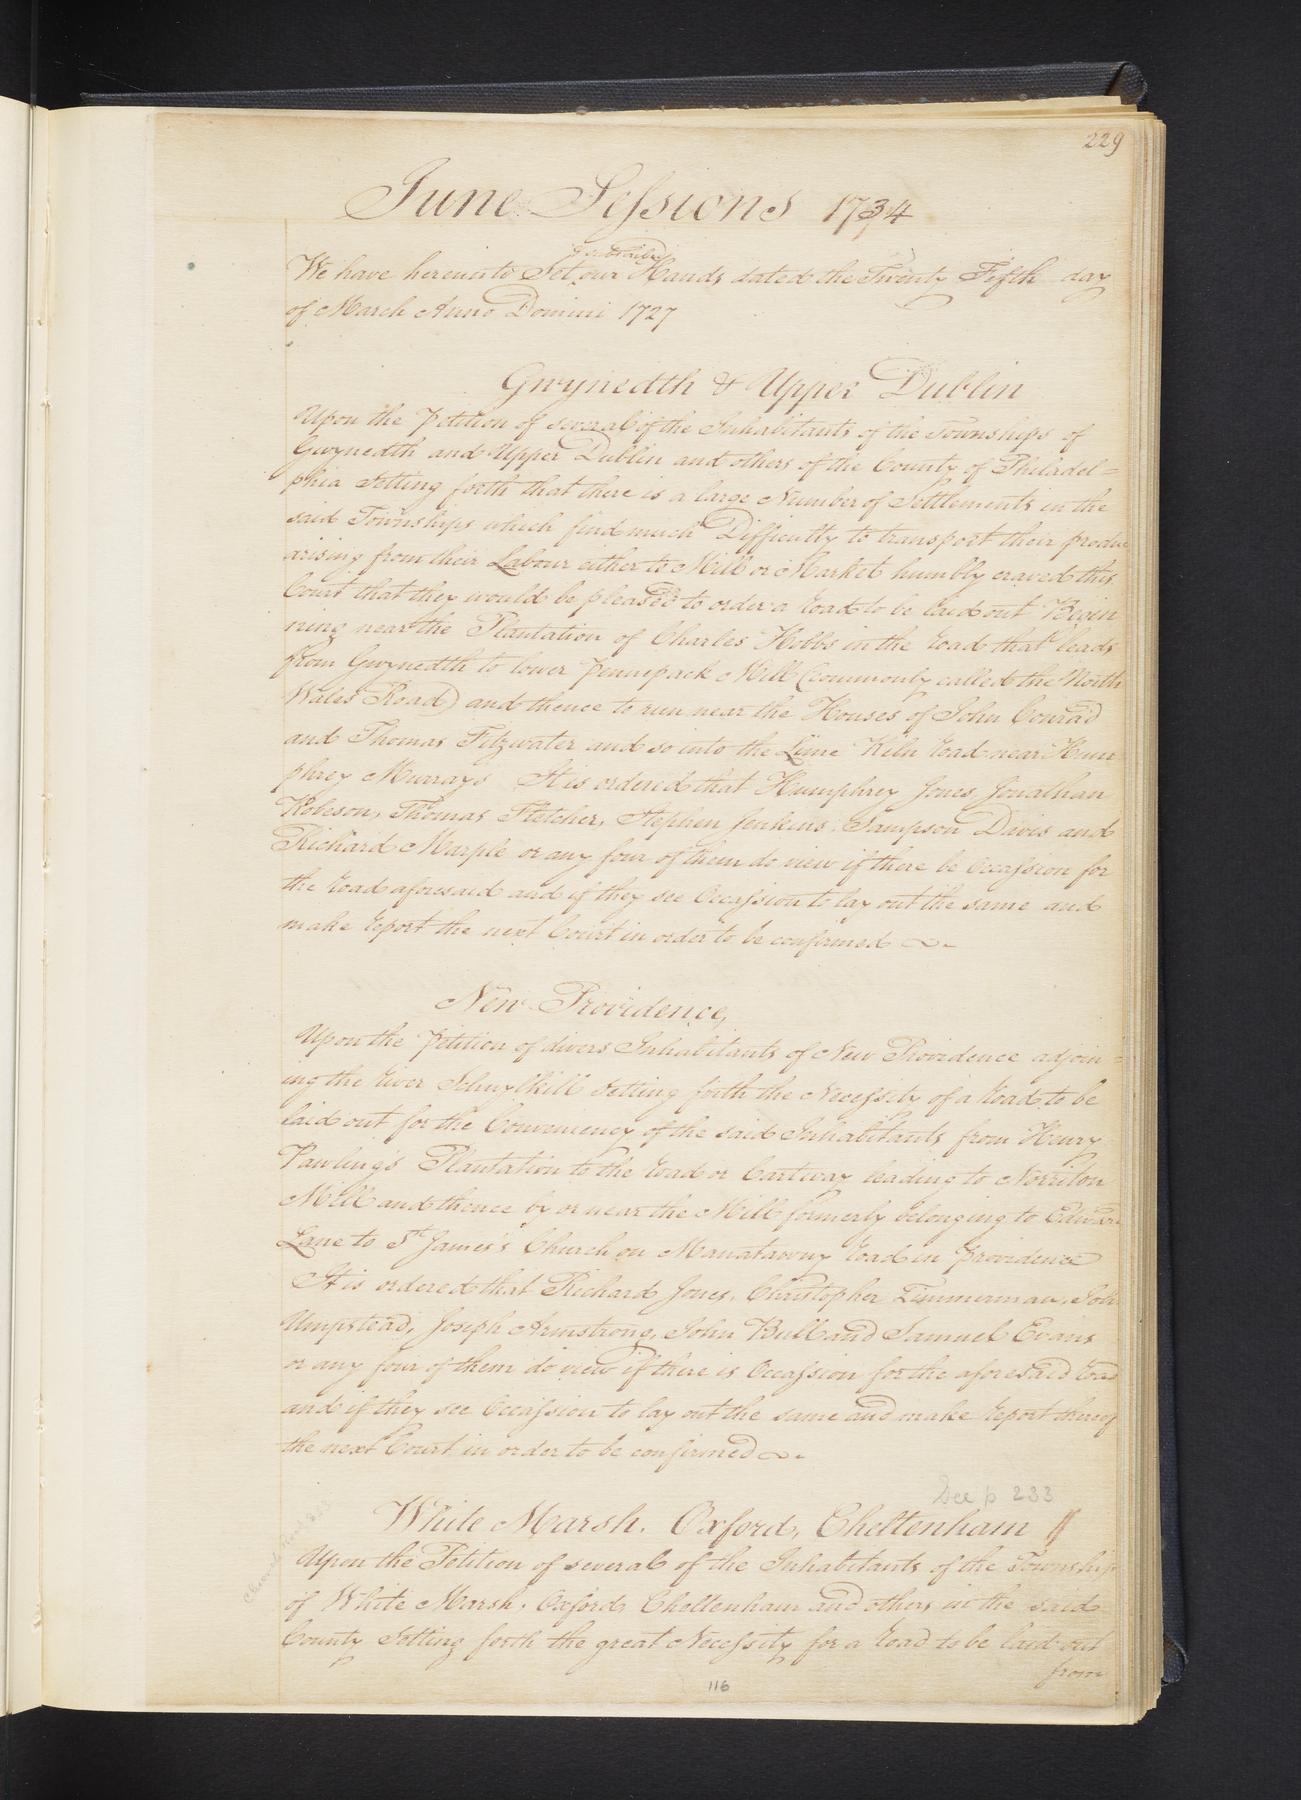 229
June Sessions 1734
& subscribed
We have hereunto Set our Hands dated the Twenty Fifth day
of March Anno Domini 1727
Gwynedth & Upper Dublin
Upon the Petition of several of the Inhabitants of the Townships of
Gwynedth and Upper Dublin and others of the County of Philadel=
phia Setting forth that there is a large Number of Settlements in the
said Townships which find much Difficulty to transport their produce
arising from their Labour either to Mill or Market humbly craved this
Court that they would be pleased to order a road to be laid out Begin
ning near the Plantation of Charles Hobbs in the road that leads
from Gwynedth to lower Pennepack Mill (commonly called the North
Wales Road) and thence to run near the Houses of John Conrad
and Thomas Fitzwater and so into the Lime Kiln road near Hum
phrey Murrays It is ordered that Humphrey Jones, Jonathan
Robeson, Thomas Fletcher, Stephen Jenkins, Sampson Davis and
Richard Marple or any four of them do view if there be Occassion for
the road aforesaid and if they see Occassion to lay out the same and
make report the next Court in order to be confirmed
New Providence,
Upon the Petition of divers Inhabitants of New Providence adjoin=
ing the river Schuylkill Setting forth the Necessity of a road to be
laid out for the Conveniency of the said Inhabitants from Henry
Pawling's Plantation to the road or Cartway leading to Norriton
Mill and thence by or near the Mill formerly belonging to Edward
Lane to St James's Church on Manatawny road in Providence
It is ordered that Richard Jones, Christopher Timmerman, John
Umpstead, Joseph Armstrong, John Bull and Samuel Evans
or any four of them do view if there is Occassion for the aforesaid road
and if they see Occassion to lay out the same and make report thereof
the next Court in order to be confirmed
See p 233
White Marsh, Oxford, Cheltenham
Upon the Petition of several of the Inhabitants of the Township
of White Marsh, Oxford, Cheltenham and others in the said
County Setting forth the great Necessity for a road to be laid out
from
116